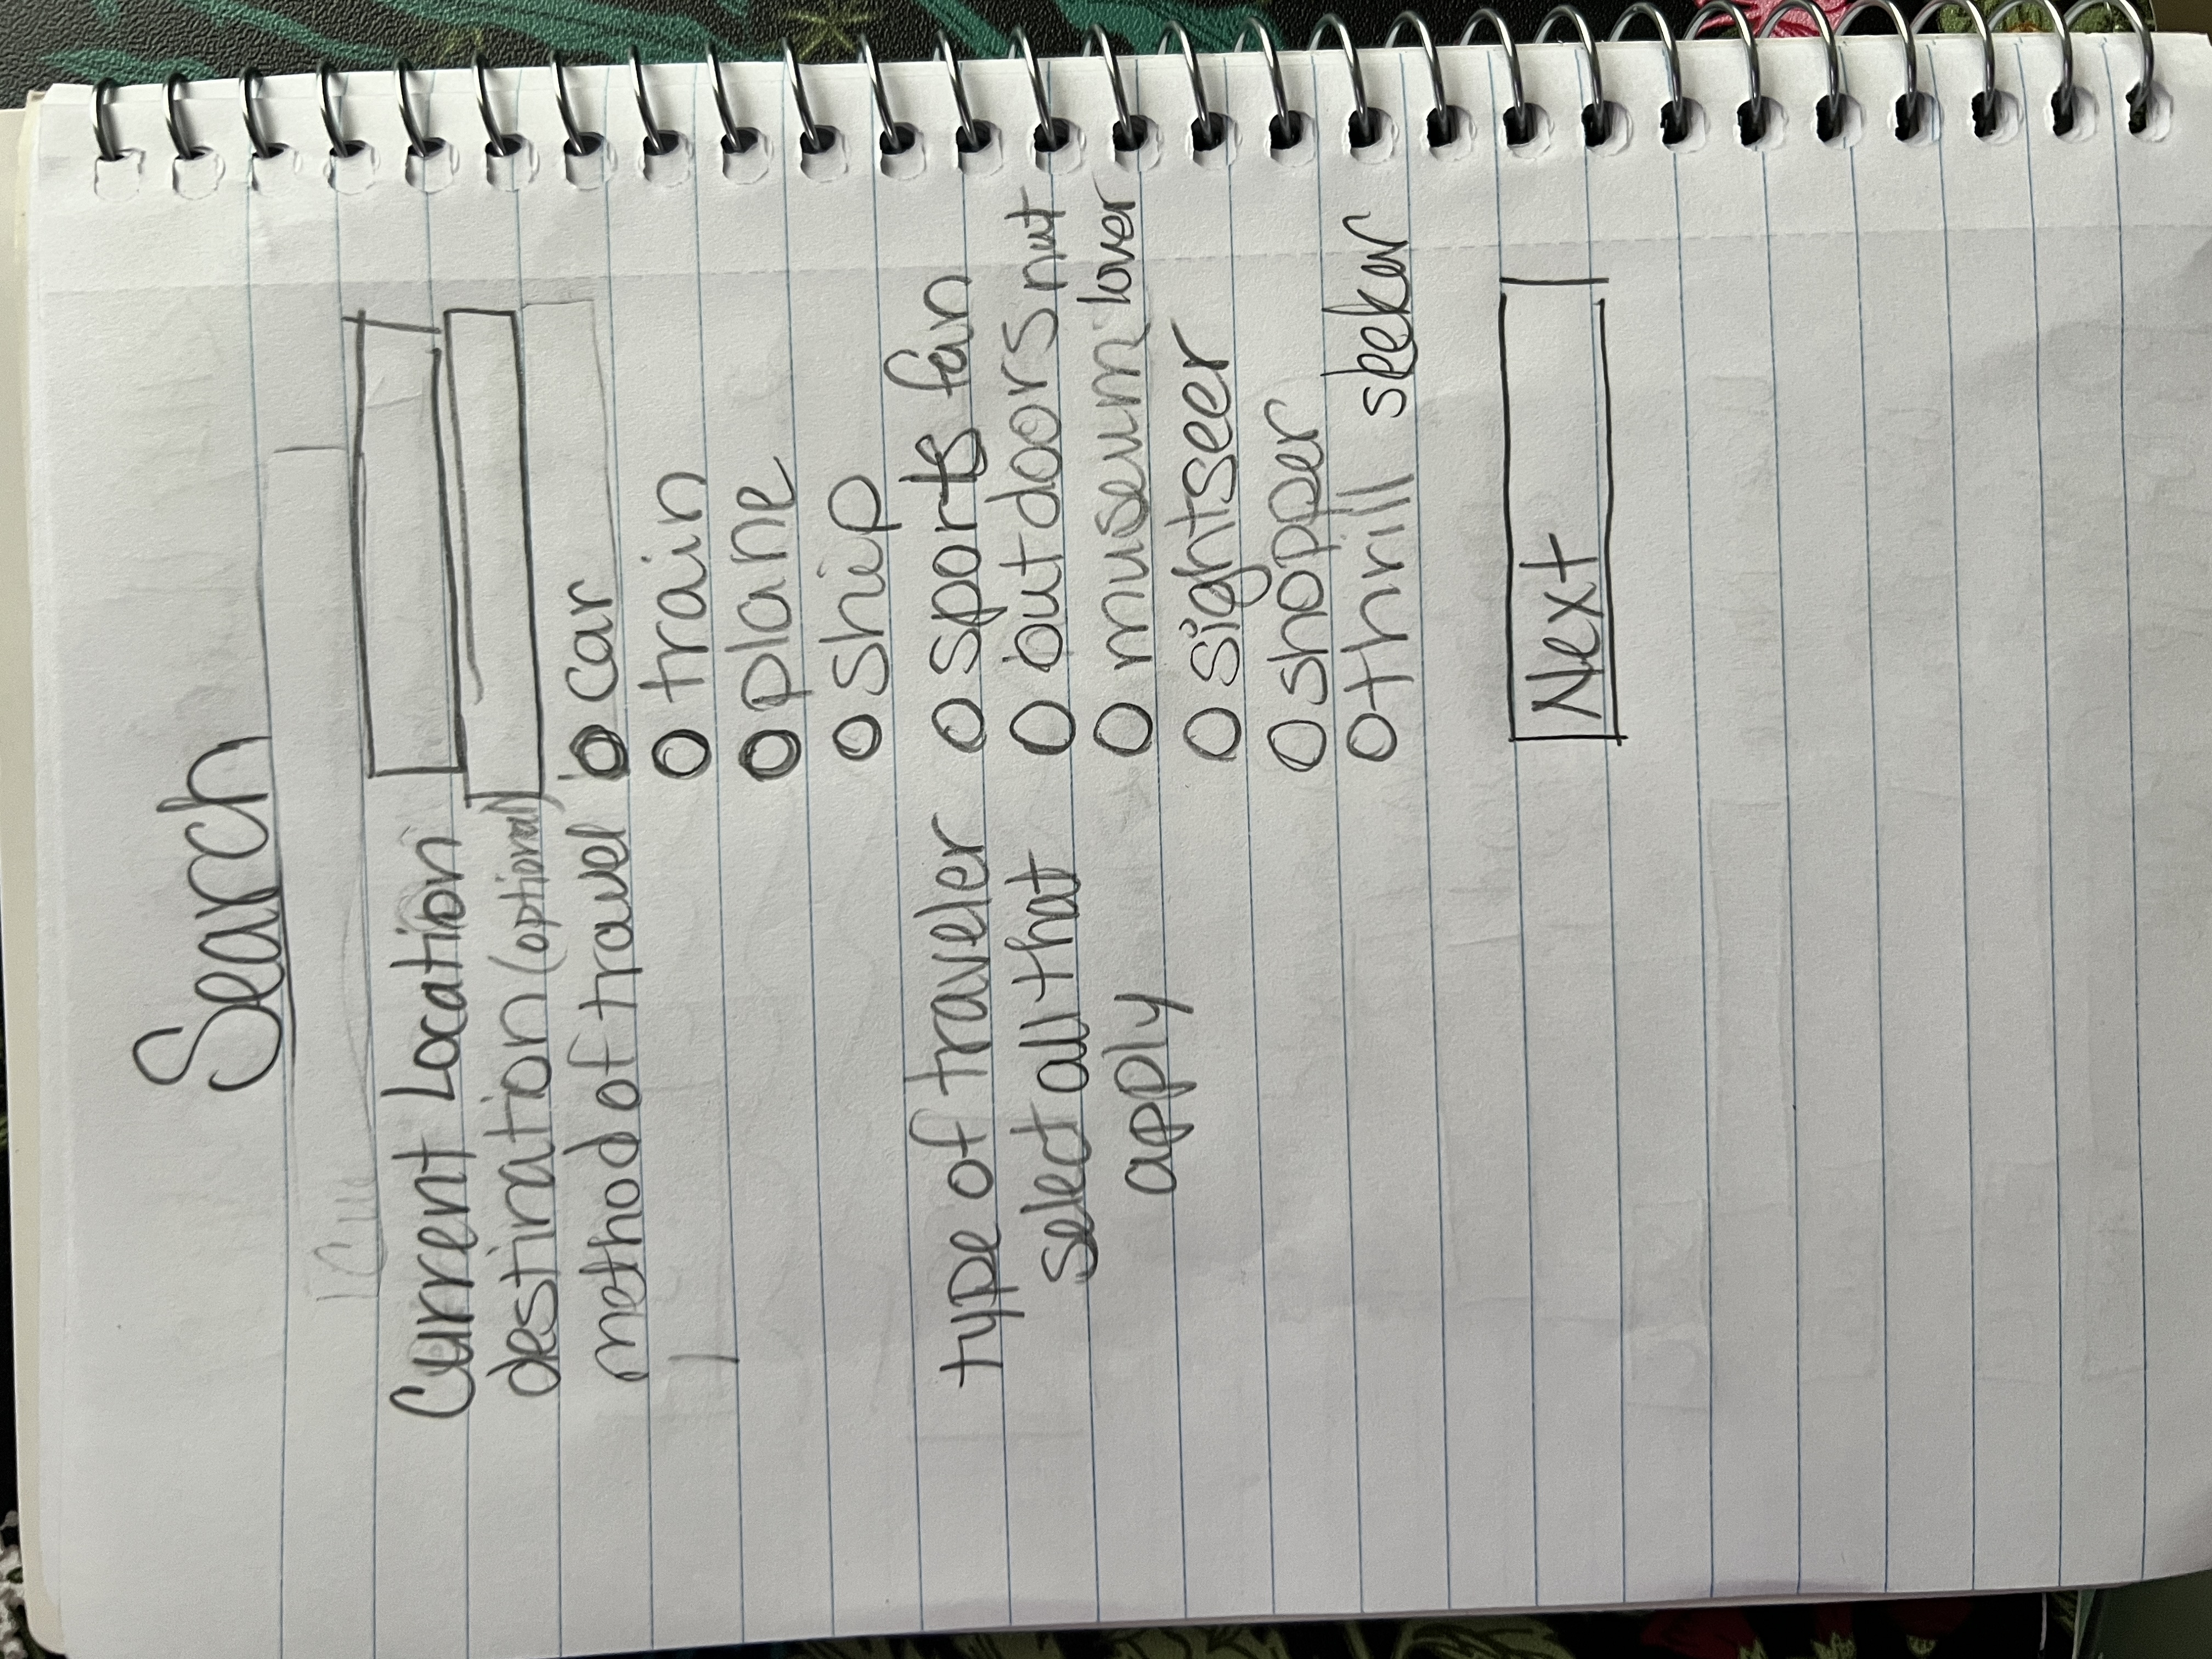 Search
Current Location
destination (optional)
method of travel O car
O train
O plane
O ship
type of traveler O sports fan
select all that O outdoors nut
apply O museum lover
O sightseer
O shopper
O thrill seeker
Next